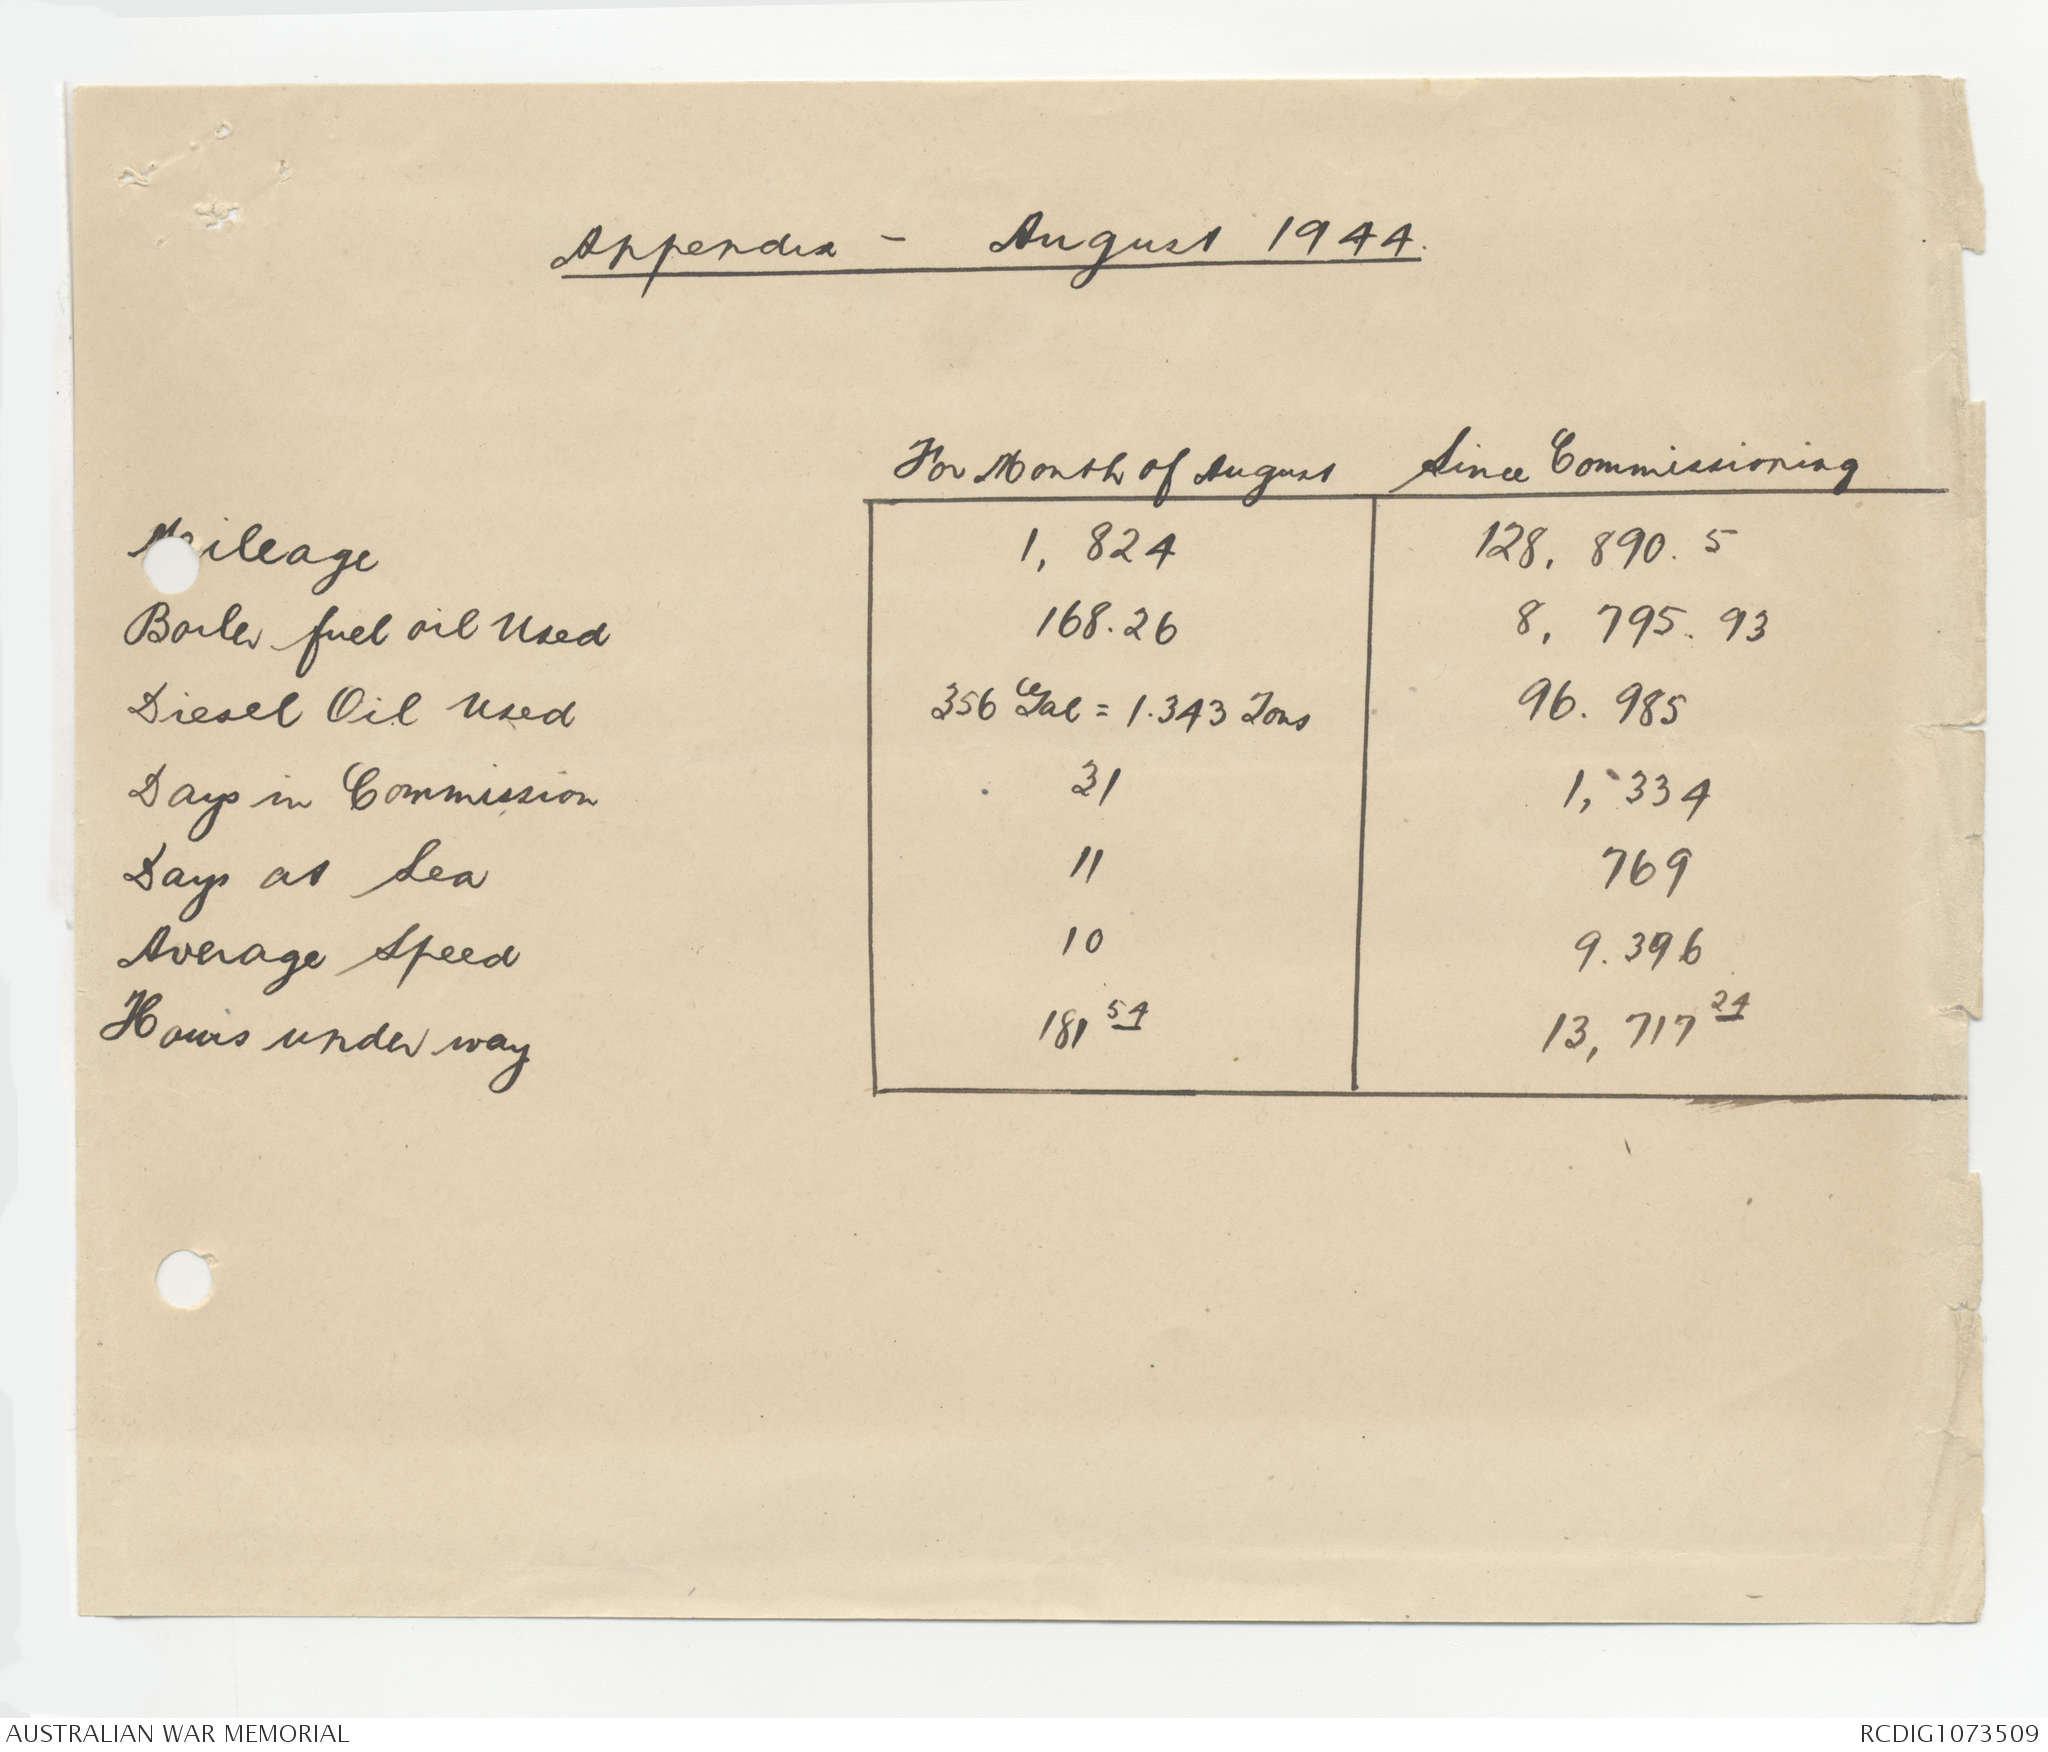 Appendix - August 1944.
For Month of August Since Commissioning
Mileage 1, 824 128, 890. 5
Boiler fuel oil Used 168.26 8, 795. 93
Diesel Oil Used 356 Gal = 1.343 Tons 96. 985
Days in Commission 31 1, 334
Days at Sea 11 769
Average Speed 10 9. 396
Hours under way 181 54 13, 717 24
AUSTRALIAN WAR MEMORIAL RCDIG1073509